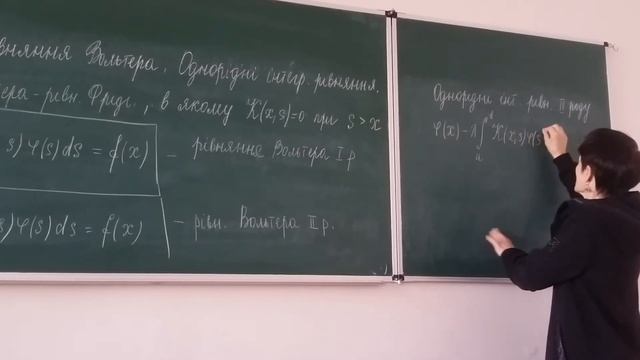 вняння Вольтера. Однорідні інтегр. рівняння.
ера-рівн. Фредг., в якому K(x,s)=0 при s>x
s)φ(s)ds = f(x) – рівняння Вольтера I р
s)φ(s)ds = f(x) – рівн. Вольтера II р.
Однорідне інт. рівн. II роду
φ(x)-λ∫ₐᵇK(x,s)φ(s